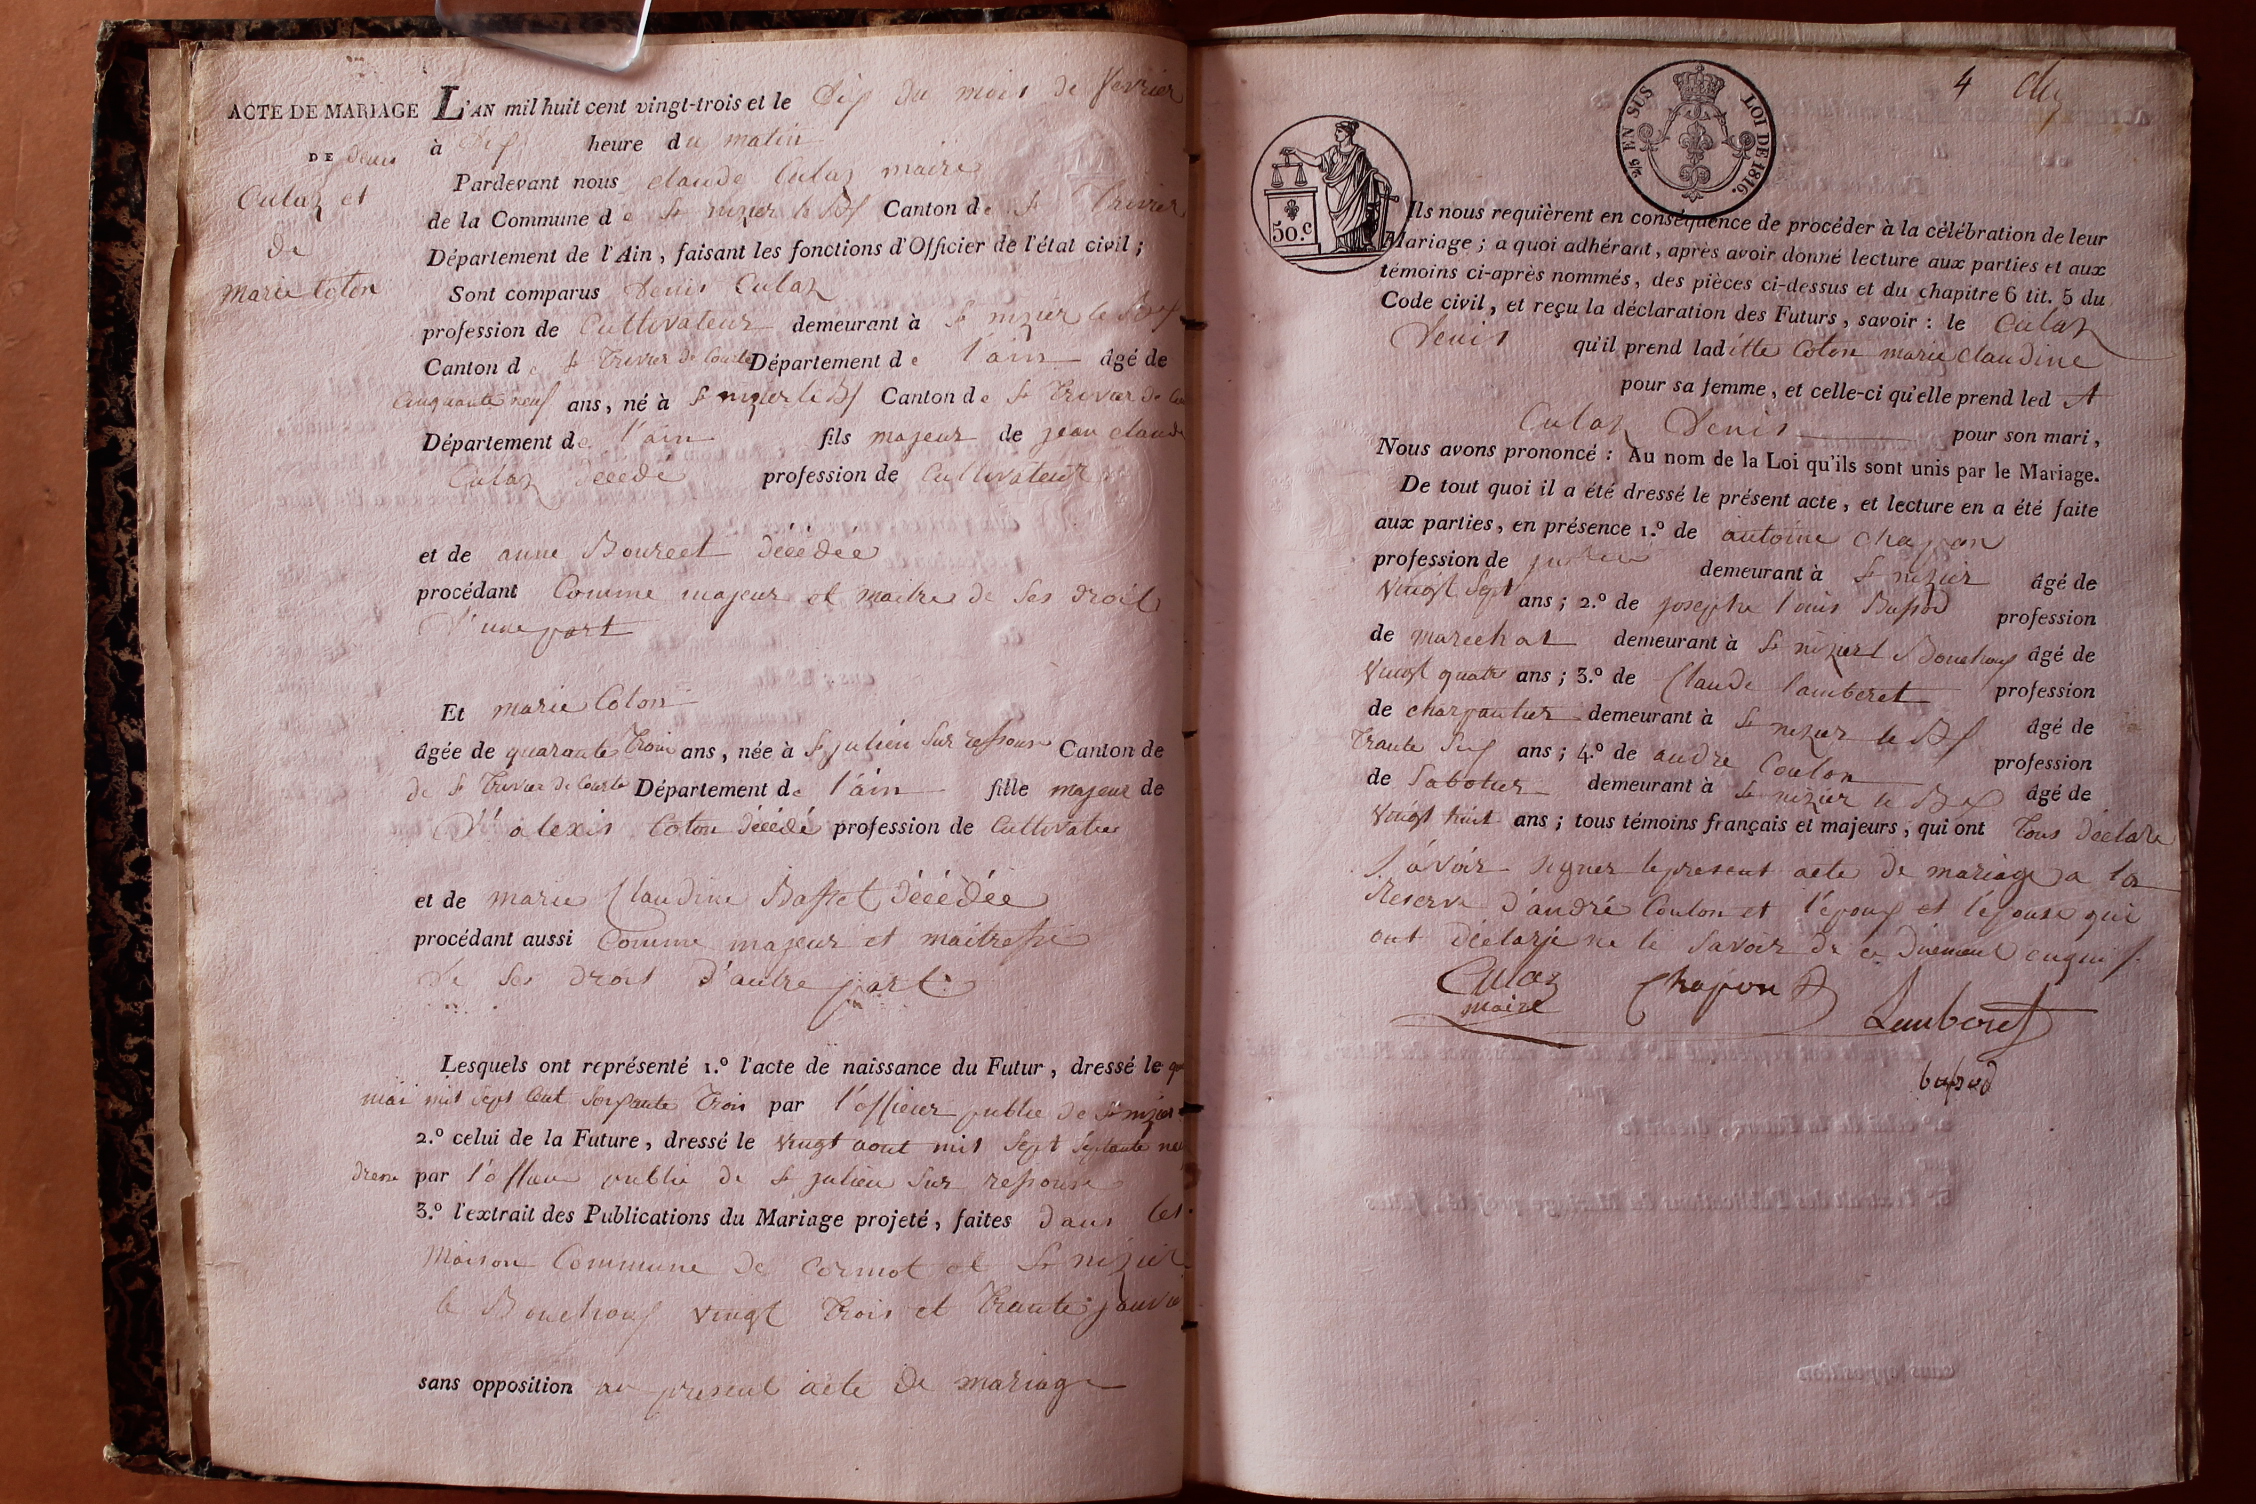 ACTE DE MARIAGE
DE denis
Culaz et
de
marie Coton
L'AN mil huit cent vingt-trois et le Dix du mois de fevrier
à Dix heure du matin
Pardevant nous claude Culaz maire
de la Commune de St nizier le Bx Canton de St Trivier
Département de l'Ain, faisant les fonctions d'Officier de l'état civil;
Sont comparus Denis Culaz
profession de Cultivateur demeurant à St nizier le Bx
Canton de St Trivier de Courte Département de l'ain âgé de
Cinquante neuf ans, né à St nizier le Bx Canton de St Trivier de Cou
Département de l'ain fils majeur de jean claude
Culaz decedé profession de Cultivateur
et de anne Boureet décédée
procédant Comme majeur et maitre de ses droit
D'une part
Et marie Coton
âgée de quarante Trois ans, née à St julien Sur ressouse Canton de
de St Trivier de Courte Département de l'ain fille majeur de
alexis Coton décédé profession de Cultivateur
et de marie Claudine Basset décédée
procédant aussi Comme majeur et maitresse
de ses droit d'autre part
Lesquels ont représenté 1.º l'acte de naissance du Futur, dressé le
mai mil sept Cent Soixante Trois par l'officier public de St nizier
2.º celui de la Future, dressé le vingt aout mil sept septante neuf
par public de St julien Sur ressouse
3.º l'extrait des Publications du Mariage projeté, faites dans les
Maison Commune de cormot et St nizier
le Bouchoux vingt Trois et Trante janvier
sans opposition au present acte de mariage
4
EN SUS LOI DE 1816.
50.c
Ils nous requièrent en conséquence de procéder à la célébration de leur
Mariage; a quoi adhérant, après avoir donné lecture aux parties et aux
témoins ci-après nommés, des pièces ci-dessus et du chapitre 6 tit. 5 du
Code civil, et reçu la déclaration des Futurs, savoir: le Culaz
Denis qu'il prend laditte Coton marie claudine
pour sa femme, et celle-ci qu'elle prend led
Culaz Denis pour son mari,
Nous avons prononcé: Au nom de la Loi qu'ils sont unis par le Mariage.
De tout quoi il a été dressé le présent acte, et lecture en a été faite
aux parties, en présence 1.º de antoine chapon
profession de demeurant à St nizier âgé de
vingt Sept ans; 2.º de josephe louis Bussod profession
de marechal demeurant à St nizier l Bouchoux âgé de
vingt quatre ans; 3.º de Claude lamberet profession
de charpantier demeurant à St nizier le Bx âgé de
Trante Six ans; 4.º de andré Coulon profession
de Sabotier demeurant à St nizier le Bx âgé de
vingt huit ans; tous témoins français et majeurs, qui ont Tous declare
Savoir signer le present acte de mariage a la
Reserve d'andré Coulon et l'époux et l'épouse qui
ont déclaré ne le Savoir de ce duement enquis.
Culaz Chapon Lamberet
maire
bussod